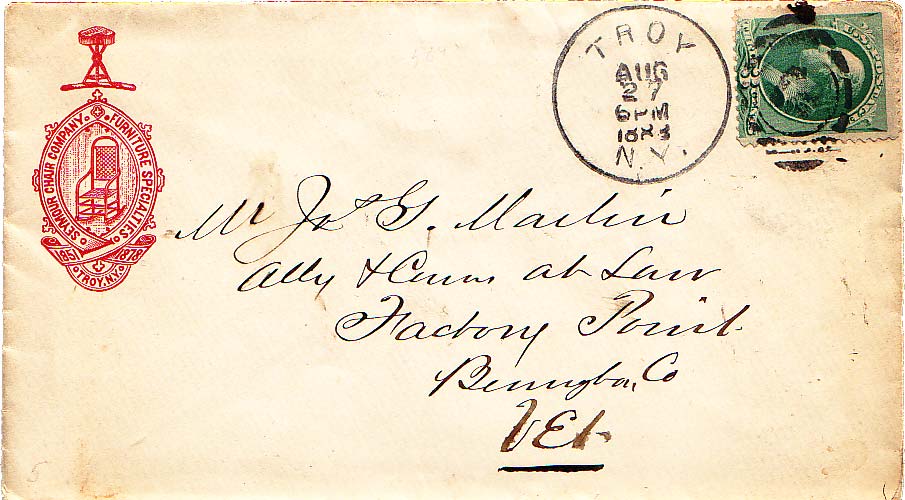 SEYMOUR CHAIR COMPANY.
FURNITURE SPECIALTIES.
1851 1878
TROY, N.Y.
TROY
AUG
27
6PM
1883
N.Y.
Mr Jas G. Martin
Atty & Couns at Law
Factory Point
Bennington, Co
VEt